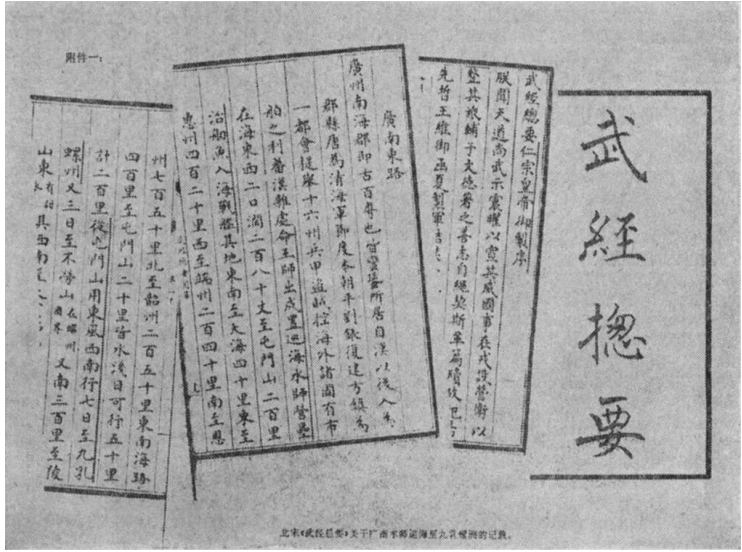 附件一:
武經揔要
武經總要仁宗皇帝御製序
朕聞天道尚武示震曜以宣其威國事在戎設營衛以
整其旅輔于文德著之善志自
先哲王維御區夏製軍詰
廣南東路
廣州南海郡即古百粵也皆蠻蜑所居自漢以後入為
郡縣唐為清海軍節度本朝平劉鋹復建方鎮為
一都會提舉十六州兵甲盜賊控海外諸國有市
舶之利蕃漢雜處命王師出戍置巡海水師營壘
在海東西二口闊二百八十丈至屯門山二百里
治舠魚入海戰艦其地東南至大海四十里東至
惠州四百二十里西至端州二百四十里南至恩
州七百五十里北至韶州二百五十里東南海路
四百里至屯門山二十里皆水淺日可行五十里
計二百里從屯門山用東風西南行七日至九乳
螺州又三日至不勞山在環州國界又南三百里至陵
山東有甜水其西南至
北宋《武经总要》关于广南水师巡海至九乳螺洲的记载。